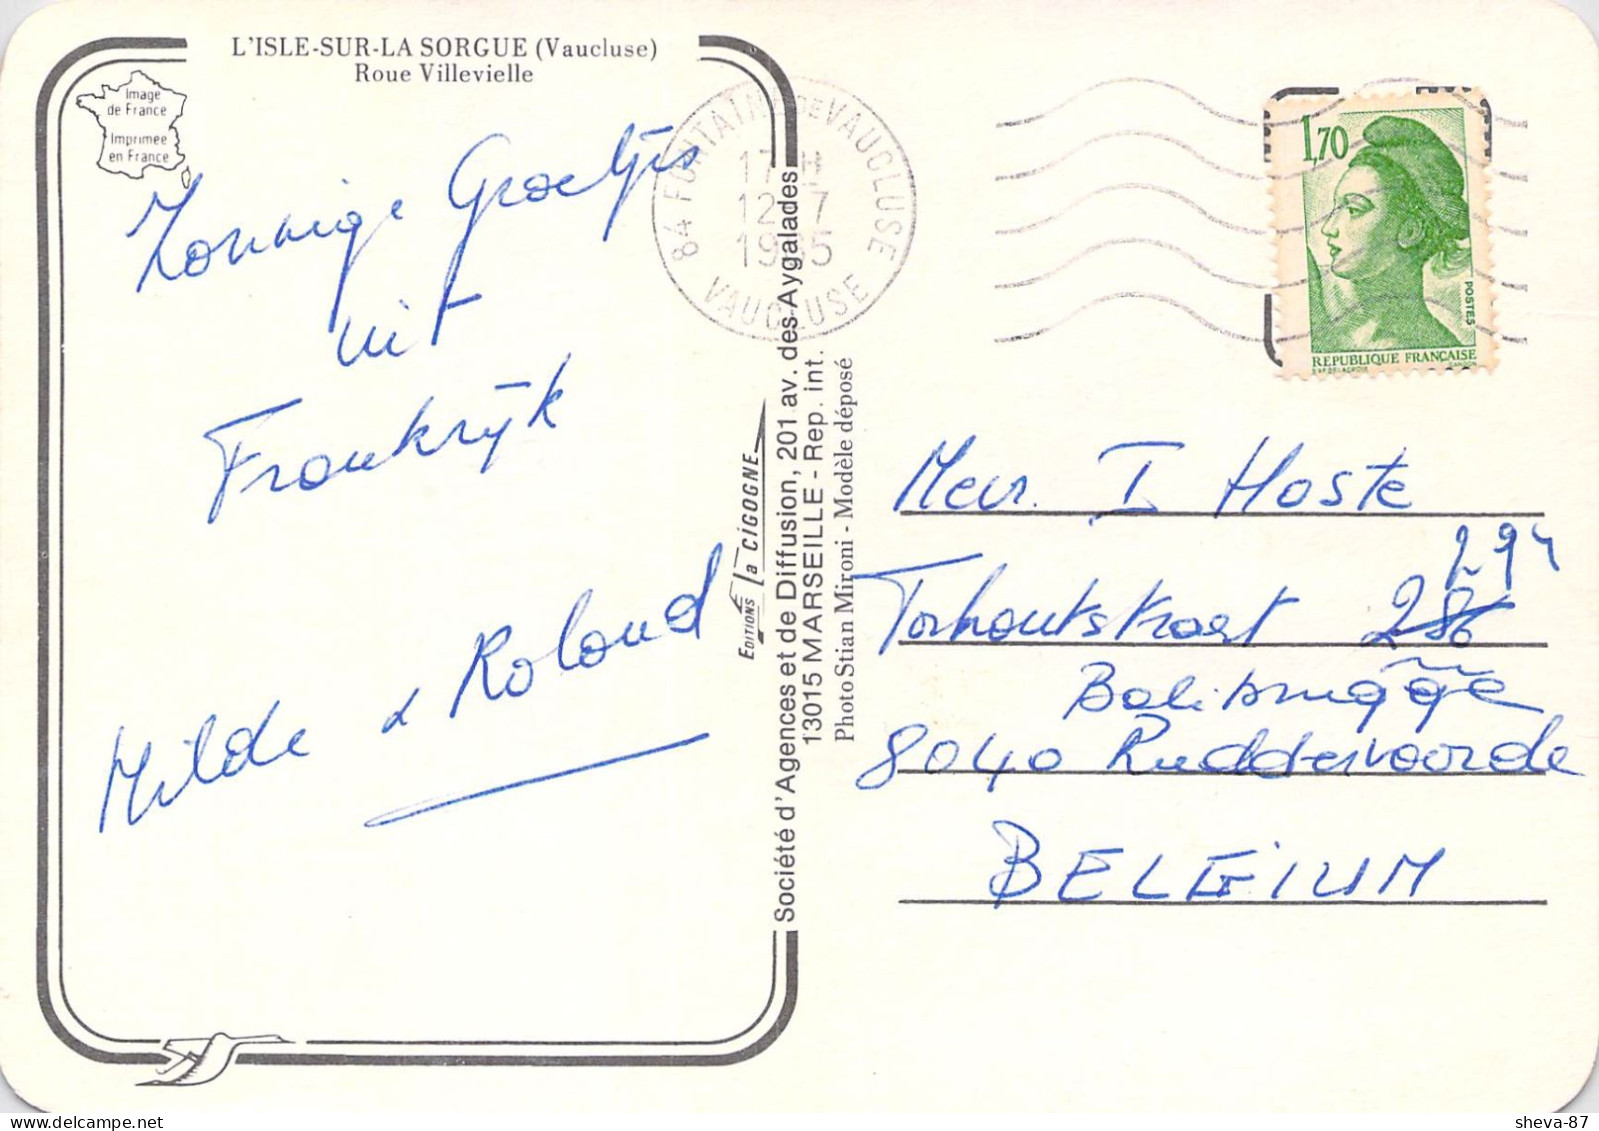 L'ISLE-SUR-LA SORGUE (Vaucluse)
Roue Villevielle
Image
de France
Imprimée
en France
Zonnige Groetjes
uit
Frankrijk
Milde & Roland
84 FONTAINE DE VAUCLUSE
17 H
12 - 7
1985
VAUCLUSE
1,70
POSTES
REPUBLIQUE FRANÇAISE
EDITIONS La CIGOGNE
Société d'Agences et de Diffusion, 201 av. des Aygalades
13015 MARSEILLE - Rep. int.
Photo Stian Mironi - Modèle déposé
Mevr. I Hoste
294
Torhoutstraat 286
Balibrugge
8040 Ruddervoorde
BELGIUM
sheva-87